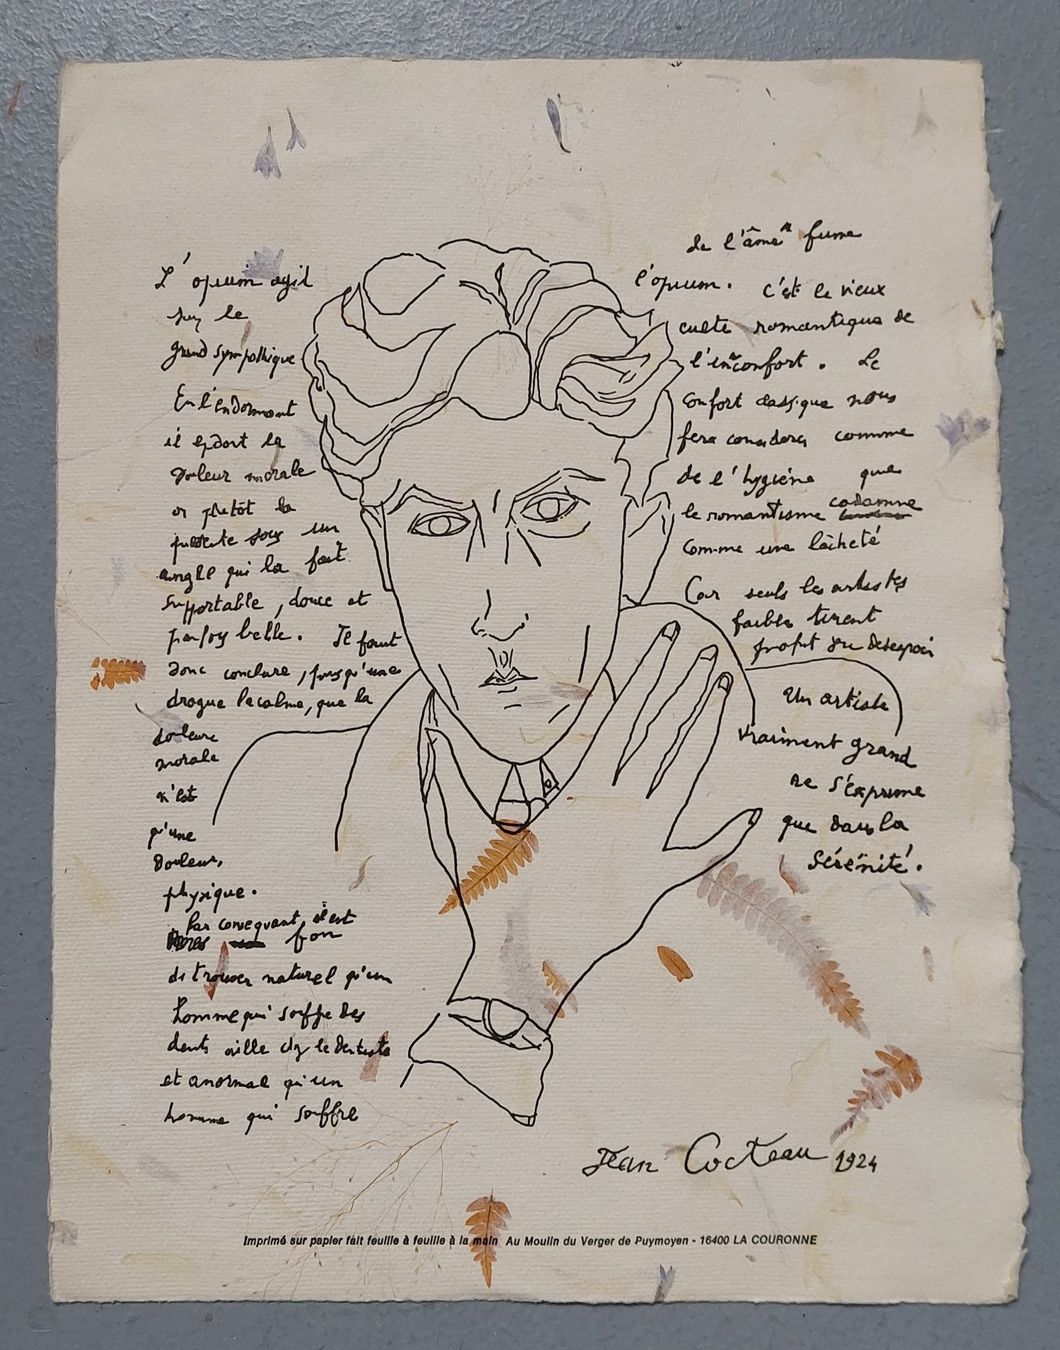 L'opium agit
sur le
grand sympathique
En l'endormant
il endort la
douleur morale
ou plutôt la
présente sous un
angle qui la fait
supportable, douce et
parfois belle. Il faut
donc conclure, puisqu'une
drogue la calme, que la
douleur
morale
n'est
qu'une
douleur
physique.
Par consequant, il est
fou
de trouver naturel qu'un
homme qui souffre des
dents aille chez le dentiste
et anormal qu'un
homme qui souffre
de l'âme" fume
l'opium. C'est le vieux
culte romantique de
l'inconfort. Le
confort classique nous
fera considerer comme
de l'hygiène que
le romantisme codamne
comme une lâcheté
Car seuls les artistes
faibles tirent
profit du desespoir
Un artiste
vraiment grand
ne s'exprime
que dans la
sérénité.
Jean Cocteau 1924
Imprimé sur papier fait feuille à feuille à la main Au Moulin du Verger de Puymoyen - 16400 LA COURONNE